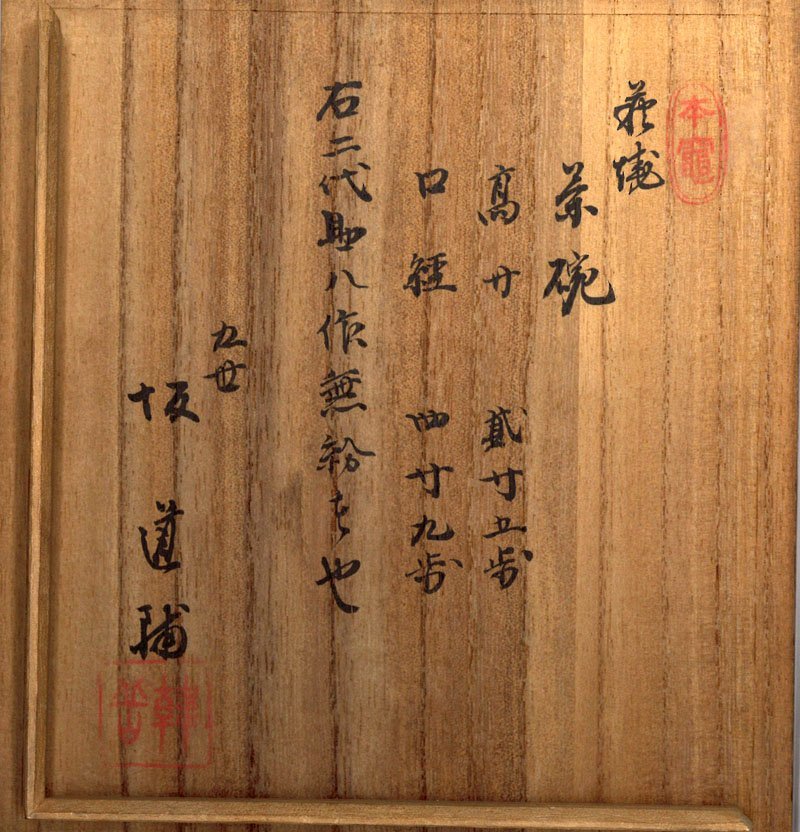 本竈
萩焼
茶碗
高サ 貳寸五歩
口経 四寸九歩
右二代助八作無紛者也
九世
坂道輔
韓峯